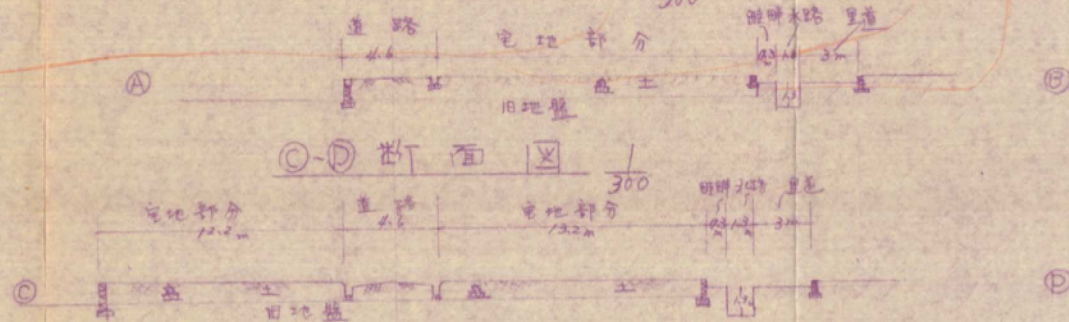 300
道路 宅地部分 畦畔 水路 里道
4.6 0.3 3m
Ⓐ 盛土 Ⓑ
旧地盤
Ⓒ-Ⓓ 断面図 1/300
宅地部分 道路 宅地部分 畦畔 水路 里道
12.2m 4.6 13.2m 0.3m 1.3m 3m
Ⓒ 盛土 盛土 Ⓓ
旧地盤